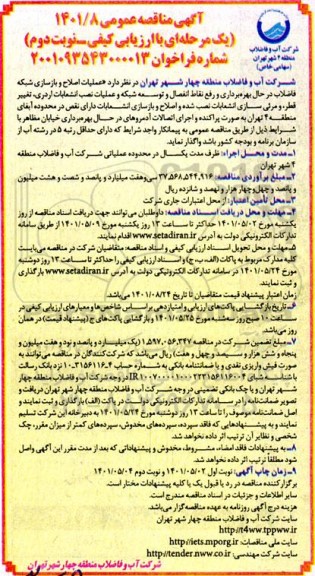 آگهی مناقصه عمومی ۱۴۰۱/۸
(یک مرحله‌ای با ارزیابی کیفی ـ نوبت دوم)
شماره فراخوان ۲۰۰۱۰۹۳۵۴۳۰۰۰۰۱۳
شرکت آب و فاضلاب
منطقه ۴ شهر تهران
(سهامی خاص)
شرکت آب و فاضلاب منطقه چهار شهر تهران در نظر دارد «عملیات اصلاح و بازسازی شبکه
فاضلاب در حال بهره‌برداری و رفع نقاط انفصال و توسعه شبکه و عملیات نصب انشعابات اردری، تغییر
قطر، و مرئی سازی انشعابات نصب شده و اصلاح و بازسازی انشعابات دارای نقص در محدوده آبفای
منطقه ۴ تهران به صورت پراکنده و اجرای اتصالات آدمروهای در حال بهره‌برداری خیابان مظاهر با
شرایط ذیل از طریق مناقصه عمومی به پیمانکار واجد شرایط که دارای حداقل رتبه ۵ در رشته آب از
سازمان برنامه و بودجه کشور باشد واگذار نماید.
۱ـ مدت و محل اجراء: ظرف مدت یک‌سال در محدوده عملیاتی شرکت آب و فاضلاب منطقه
۴ شهر تهران.
۲ـ مبلغ برآوردی مناقصه: ۳۷,۵۶۸,۵۴۴,۹۱۶ سی‌وهفت میلیارد و پانصد و شصت و هشت میلیون
و پانصد و چهل‌وچهار هزار و نهصد و شانزده ریال
۳ـ محل تأمین اعتبار: از محل اعتبارات جاری شرکت
۴ـ مهلت و محل دریافت اسناد مناقصه: داوطلبان می‌توانند جهت دریافت اسناد مناقصه از روز
یکشنبه مورخ ۱۴۰۱/۰۵/۰۲ حداکثر تا ساعت ۱۳ روز یکشنبه مورخ ۱۴۰۱/۰۵/۰۹ از طریق سامانه
تدارکات الکترونیکی دولت به آدرس www.setadiran.ir اقدام نمایند.
۵ـ مهلت و محل تحویل اسناد ارزیابی کیفی و اسناد مناقصه: متقاضیان شرکت در مناقصه می‌بایست
کلیه مدارک مربوط به پاکات (الف، ب، ج) و اسناد ارزیابی کیفی را حداکثر تا ساعت ۱۳ روز دوشنبه
مورخ ۱۴۰۱/۰۵/۲۴ در سامانه تدارکات الکترونیکی دولت به آدرس www.setadiran.ir بارگذاری
و ثبت نمایند.
زمان اعتبار پیشنهاد قیمت متقاضیان تا تاریخ ۱۴۰۱/۰۸/۲۴ می‌باشد.
۶ـ تاریخ بازگشایی پاکت‌های ارزیابی و امتیازدهی براساس شاخص‌ها و معیارهای ارزیابی کیفی در
ساعت ۱۰ صبح روز سه‌شنبه مورخ ۱۴۰۱/۰۵/۲۵ و بازگشایی پاکت‌های ج (پیشنهاد قیمت) در همان
روز می‌باشد.
۷ـ مبلغ تضمین شرکت در مناقصه ۱,۵۹۷,۰۵۶,۳۴۷ (یک میلیارد و پانصد و نود و هفت میلیون و
پنجاه و شش هزار و سیصد و چهل و هفت) ریال می‌باشد که شرکت‌کنندگان در مناقصه می‌توانند به
صورت فیش واریزی نقدی و یا ضمانتنامه بانکی به
شهر تهران و یا چک بانکی تضمینی در وجه شرکت آب و فاضلاب منطقه چهار شهر تهران دریافت و
تصویر ضمانت‌نامه را در سامانه تدارکات الکترونیکی دولت در پاکت (الف) بارگذاری و ثبت نمایند و
اصل ضمانت‌نامه موصوف را تا ساعت ۱۳ روز دوشنبه مورخ ۱۴۰۱/۰۵/۲۴ به دبیرخانه این شرکت تسلیم
نمایند و به پیشنهادهایی که فاقد سپرده، سپرده‌های مخدوش، سپرده‌های کمتر از میزان مقرر، چک
شخصی و نظایر آن ترتیب اثر داده نخواهد شد.
۸ـ به پیشنهادات فاقد امضاء، مشروط، مخدوش و پیشنهاداتی که بعد از مدت مقرر این آگهی واصل
شود مطلقاً ترتیب اثر داده نخواهد شد.
۹ـ زمان چاپ آگهی: نوبت اول ۱۴۰۱/۰۵/۰۲ و نوبت دوم ۱۴۰۱/۰۵/۰۳
برگزارکننده مناقصه در رد یا قبول یک یا کلیه پیشنهادات مختار است.
سایر اطلاعات و جزئیات در اسناد مناقصه مندرج است.
هزینه درج آگهی روزنامه به عهده مناقصه‌گزار می‌باشد.
سایت شرکت آب و فاضلاب منطقه چهار شهر تهران
http://t4ww.tppww.ir
سایت ملی مناقصات: http://iets.mporg.ir
سایت شرکت مهندسی: http://tender.nww.co.ir
شرکت آب و فاضلاب منطقه چهار شهر تهران